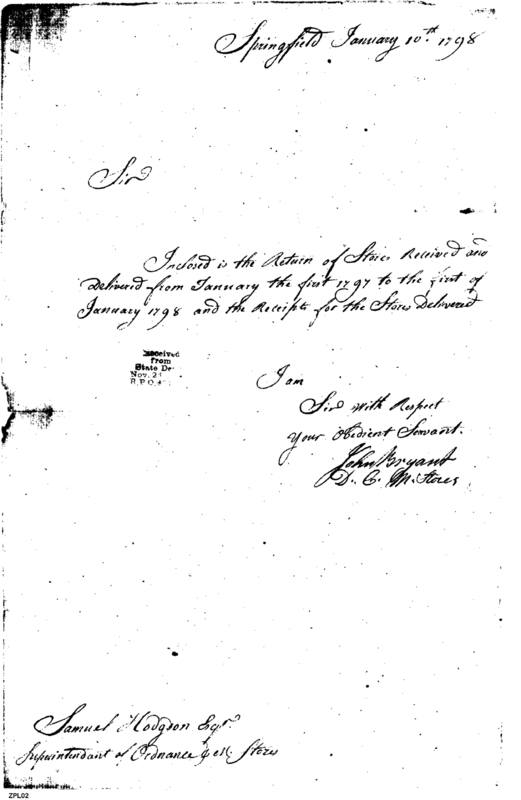 Springfield January 10th. 1798
Sir
Inclosed is the Return of Stores Received and
Delivered from January the first 1797 to the first of
January 1798 and the Receipts for the Stores Delivered
Received
from
State De
Nov. 2
R.P.O.
I am
Sir with Respect
your Obedient Servant.
John Bryant
D. C. M. Stores
Samuel Hodgdon Esqr.
Superintendant of Ordnance & M. Stores
ZPL02